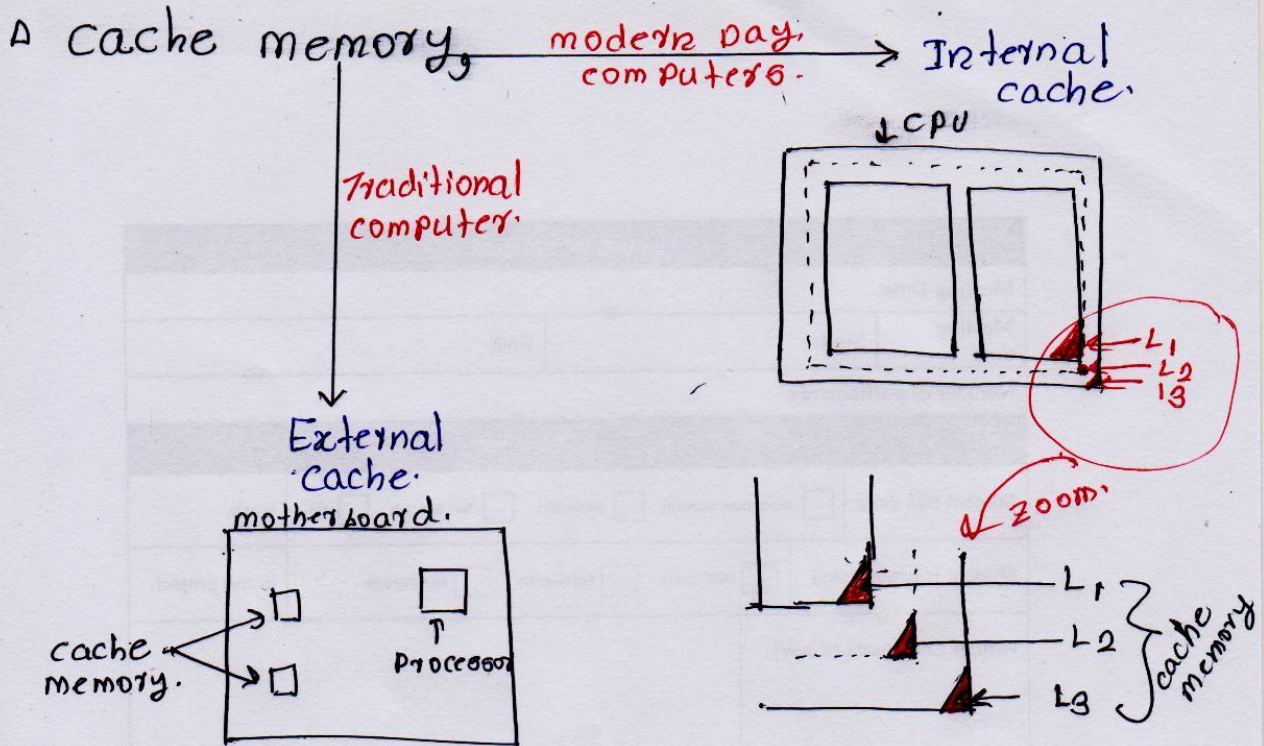 Cache memory,
modern Day.
computers.
Internal
cache.
CPU
Traditional
computer.
L1
L2
L3
External
cache.
motherboard.
zoom.
cache
memory.
Processor
L1
L2
L3
cache
memory